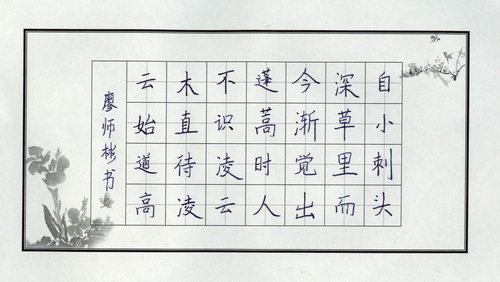 自小刺头
深草里而
今渐觉出
蓬蒿时人
不识凌云
木直待凌
云始道高
廖师彬书